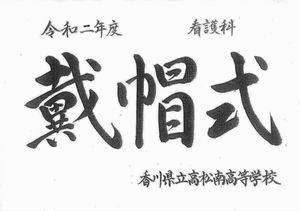 令和二年度 看護科
戴帽式
香川県立高松南高等学校